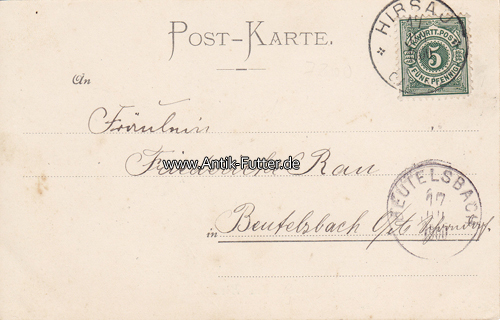 HIRSAU
K. WÜRTT. POST
5
FÜNF PFENNIG
POST-KARTE.
An
Fräulein
www.Antik-Futter.de
Friederike Rau
BEUTELSBACH
17
in Beutelsbach Ort Schorndorf.